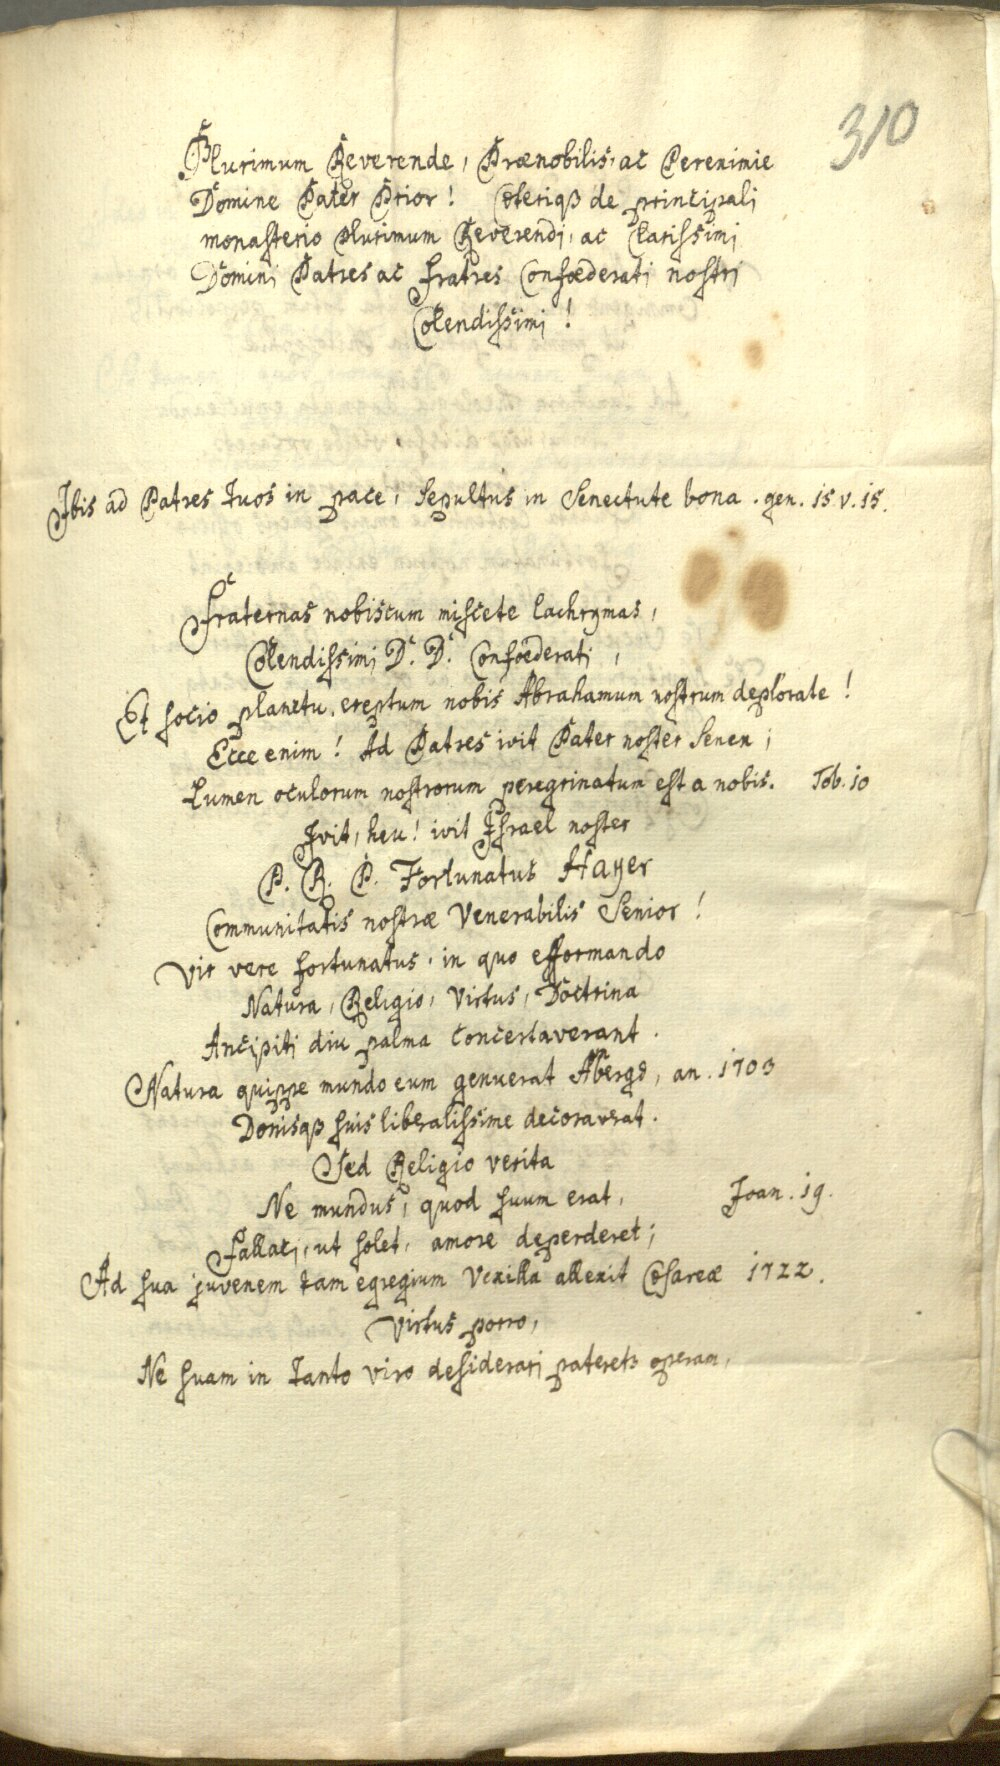 310
Plurimum Reverende, Prænobilis, ac Pereximie
Domine Pater Prior! Cæteriqȝ de principali
monasterio plurimum Reverendi, ac Clarissimi
Domini Patres ac fratres Confœderati nostri
Colendissimi!
Ibis ad Patres Tuos in pace, Sepultus in Senectute bona. gen. 15. v. 15.
Fraternas nobiscum miscete lachrymas,
Colendissimi D. D. Confœderati,
Et socio planctu, ereptum nobis Abrahamum nostrum deplorate!
Ecce enim! Ad Patres ivit Pater noster Senex;
Lumen oculorum nostrorum peregrinatum est a nobis. Tob. 10
Ivit, heu! ivit Israel noster
P. R. P. Fortunatus Hayer
Communitatis nostræ Venerabilis Senior!
Vir vere fortunatus, in quo efformando
Natura, Religio, Virtus, Doctrina
Ancipiti diu palma concertaverant.
Natura quippe mundo eum genuerat Abergæ, an. 1703
Donisqȝ suis liberalissime decoraverat.
Sed Religio verita
Ne mundus, quod suum erat, Joan. 19.
Fallaci, ut solet, amore deperderet;
Ad sua juvenem tam egregium Vexilla allexit Cæsareæ 1722.
Virtus porro,
Ne suam in tanto viro desiderari pateretȝ operam,